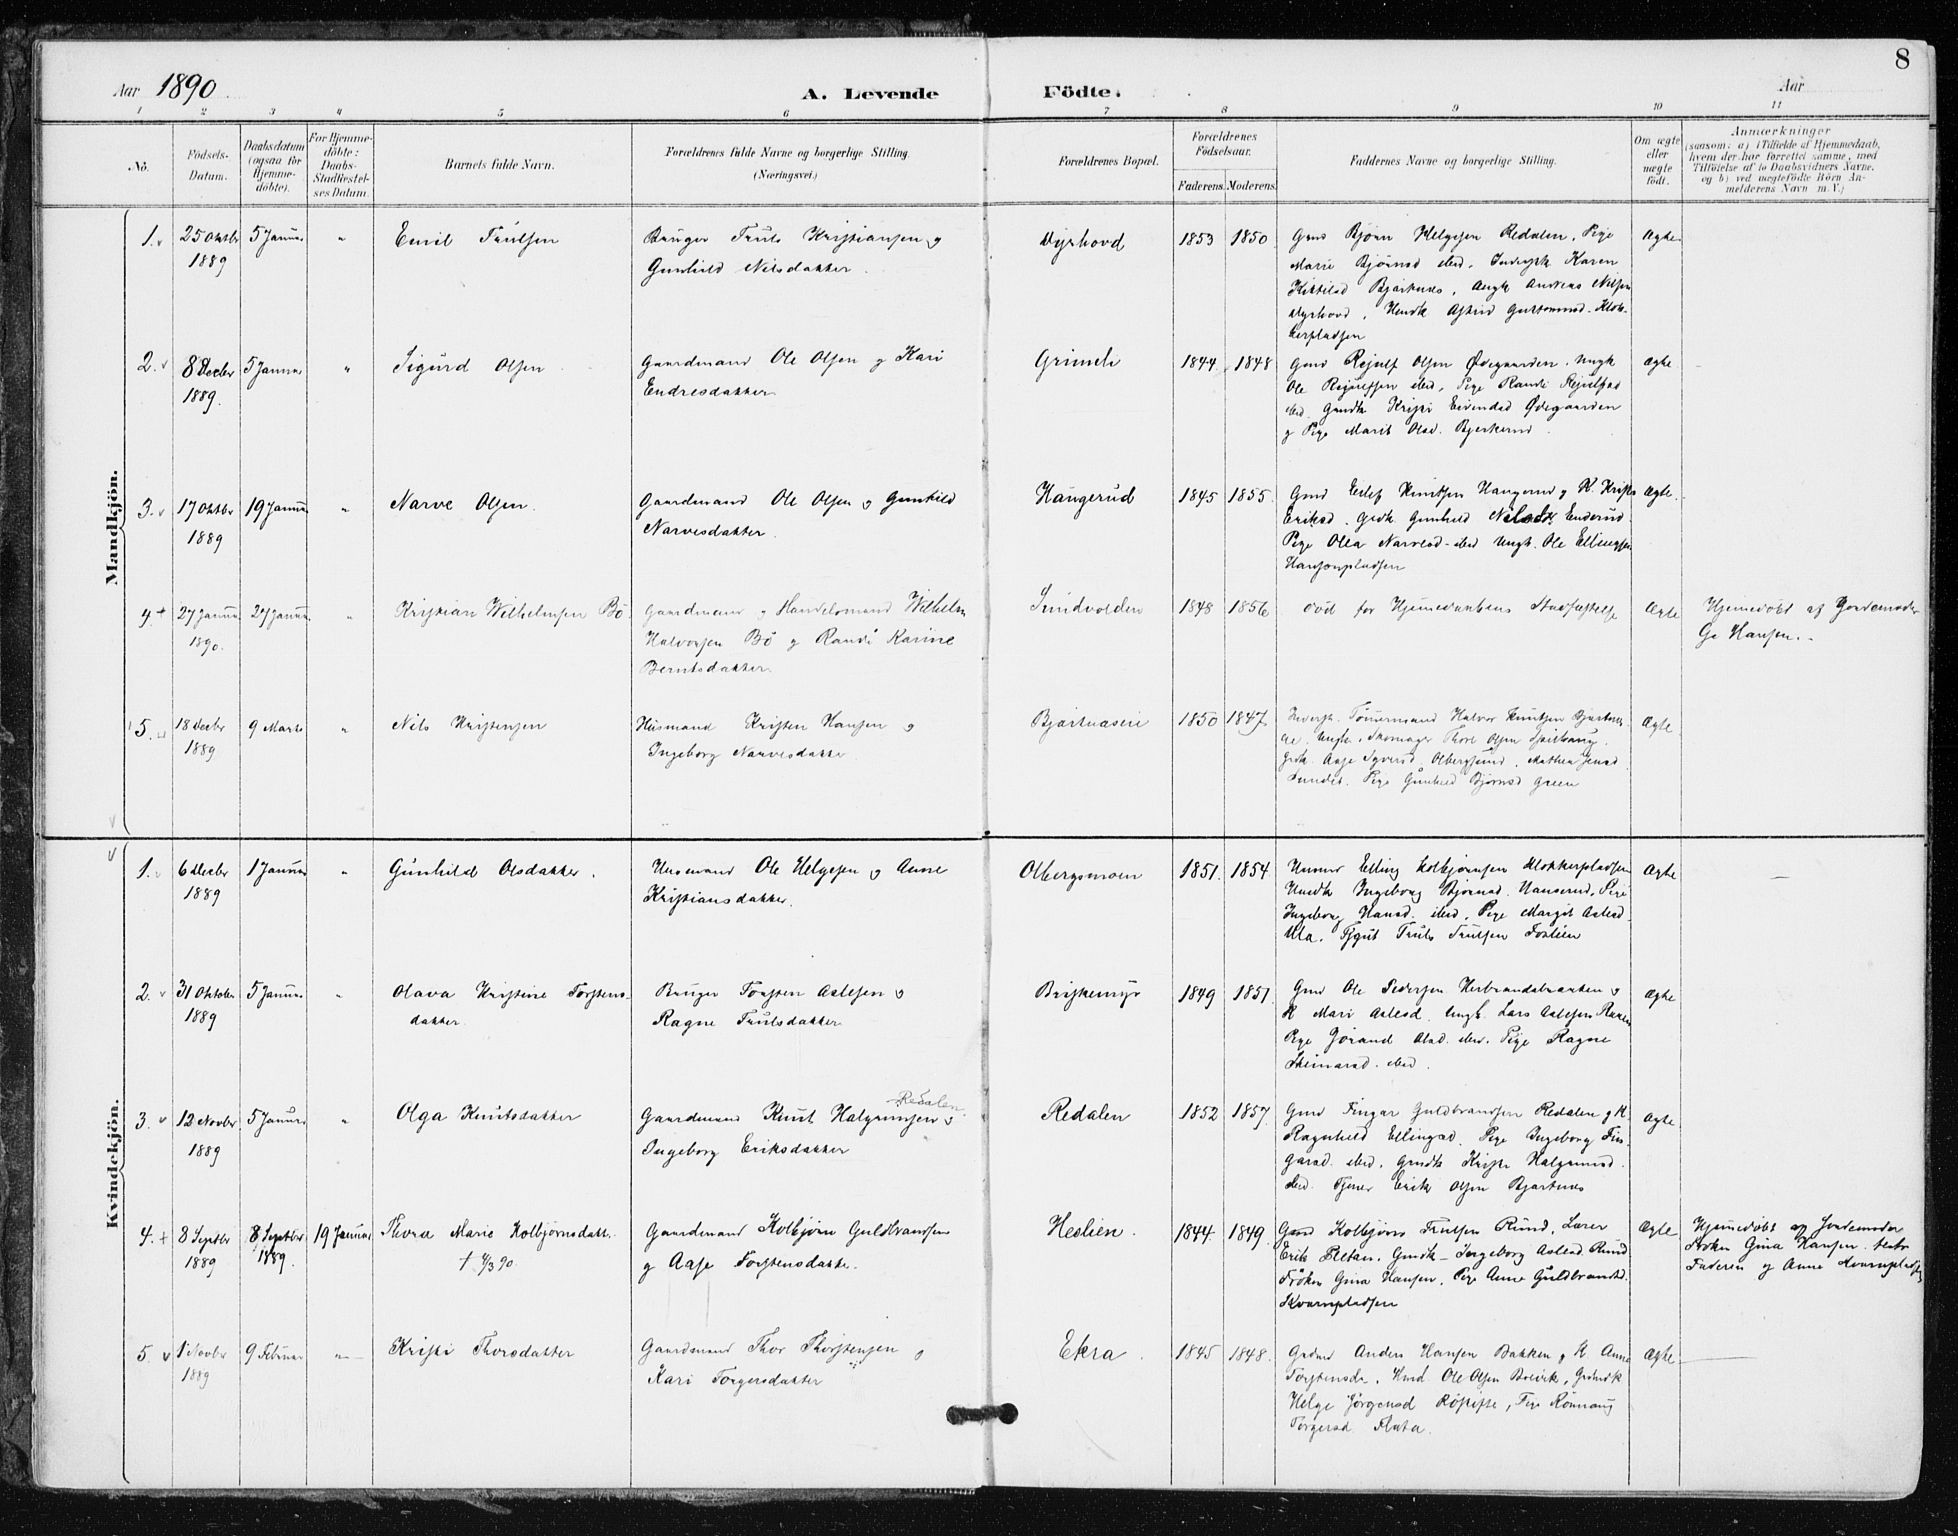 8
Aar 1890 A. Levende Födte. Aar
1 2 3 4 5 6 7 8 9 10 11
No. Födsels-Datum. Daabsdatum (ogsaa for Hjemme-döbte). For Hjemme-döbte: Daabs-Stadfæstel-ses Datum. Barnets fulde Navn. Forældrenes fulde Navne og borgerlige Stilling. (Næringsvei.) Forældrenes Bopæl. Forældrenes Födselsaar. Faderens. Moderens. Faddernes Navne og borgerlige Stilling. Om ægte eller uægte födt. Anmærkninger (saasom: a) i Tilfælde af Hjemmedaab, hvem der har forrettet samme, med Tilföielse af to Daabsvidners Navne. og b) ved uægtefödte Börn An-melderens Navn m. V.)
Mandkjön.
1. 25 Oktbr 5 Januar " Emil Trulsen Bruger Truls Kristiansen og Dyrhovd 1853 1850 Gmd Bjørn Helgesen Redalen, Pige Ægte
1889 Gunhild Nilsdatter. Marie Bjørnsd ibid. Karen
Kittilsd Bjørtnes, Ungk Andreas Nilsen
Dyrhovd, Astrid Klok-
kerpladsen
2. 8 Decbr 5 Januar " Sigurd Olsen Gaardmand Ole Olsen og Kari Grimeli 1844 1848 Gmd Rejulf Olsen Ødegaarden. Ungk Ægte
1889. Endresdatter Ole Rejulfsen ibid, Pige Randi Rejulfsd
ibid. Gmdk Kristi Eivendsd Ødegaarden
og Pige Marit Olsd. Bjerkerud
3. 17 Oktbr 19 Januar " Narve Olsen. Gaardmand Ole Olsen og Gunhild Haugerud 1845 1855. Gmd Eilef Knutsen Haugerud og K. Kristi Ægte.
1889 Narvesdatter. Eriksd. Gmdk. Gunhild Nilsd Enderud.
Pige Olea Narvesd - ibid Ungk. Ole Ellingsen
Hansonpladsen
4. + 27 Januar 27 Januar " Kristian Wilhelmsen Bö Gaardmand og Handelsmand Wilhelm Sundvolden 1848 1856 död för Hjemmedaabens Stadfæstelse Ægte Hjemmedöbt af Jordemoder
1890. Halvorsen Bö og Randi Karine Ga Hansen.
Berntsdatter.
5. 18 Decbr 9 Marts " Nils Kristensen Husmand Kristen Hansen og Bjørtnæseie 1850 1847. Tömmermand Halvor Knutsen Bjørtnes- Ægte.
1889 Ingeborg Narvesdatter Ungk. Skomager Thore Olsen
Gmdk. Aase Syversd Olbergsund. Mathea Jensd
Lundet. Pige Gunhild Bjørnsd Green
Kvindekjön.
1. 6 Decbr 1 Januar " Gunhild Olsdatter. Husmand Ole Helgesen og Anne Olbergsmoen 1851. 1854 Husmd Elling Kolbjørnsen Klokkerpladsen Ægte —
1889 Kristiansdatter. Husmdk Ingeborg Bjørnsd. Hanserud. Pige
Ingeborg Hansd. ibid, Pige Margit Aslesd
Ula. Tjgut Truls Trulsen Foslien
2. 31 Oktober 5 Januar " Olava Kristine Torstens- Bruger Torsten Aslesen og Briskemyr 1849 1851. Gmd Ole Pedersen Herbrandsbraaten og Ægte
1889 datter. Ragne Trulsdatter K Mari Aslesd. Ungk. Lars Aslesen
Pige Jörand Olsd. ibid. Pige Ragne
Steinarsd. ibid.
3. 12 Novbr 5 Januar " Olga Knutsdatter Gaardmand Knut Halgrimsen Redalen og Redalen 1852 1857. Gmd Fingar Guldbrandsen Redalen og K. Ægte
1889 Ingeborg Eriksdatter Ragnhild Ellingsd. Pige Ingeborg Fin-
garsd. ibid, Gmdk Kristi Halgrimsd.
ibid. Tjener Erik Olsen Bjørtnes
4. + 8 Septbr 8 Septbr 19 Januar Thora Marie Kolbjørnsdatt. Gaardmand Kolbjørn Guldbrandsen Heslien. 1844 1849 Gmd Kolbjørn Trulsen Rund, Lærer Ægte Hjemmedöbt af Jordemoder
1889 1889. † 4/3 90. og Aase Torstensdatter. Erik Fletan. Gmdk - Ingeborg Aslesd. Rund Fröken Gina Hansen. Testes
Fröken Gina Hansen, Pige Anne Guldbrandsd. Faderen og Anne Kvarnpladsen
Kvarnpladsen
5. 1 Novbr 9 Februar " Kristi Thorsdatter Gaardmand Thor Thorstensen og Ekra. 1845 1848. Grdmd Anders Hansen Bakken og K Anne Ægte —
1889 Kari Torgersdatter Torstensdr, Hmd Ole Olsen Bolvik, Grdmdk
Helge Jörgensd Röiste, Pige Rönnaug
Torgersd Flata.